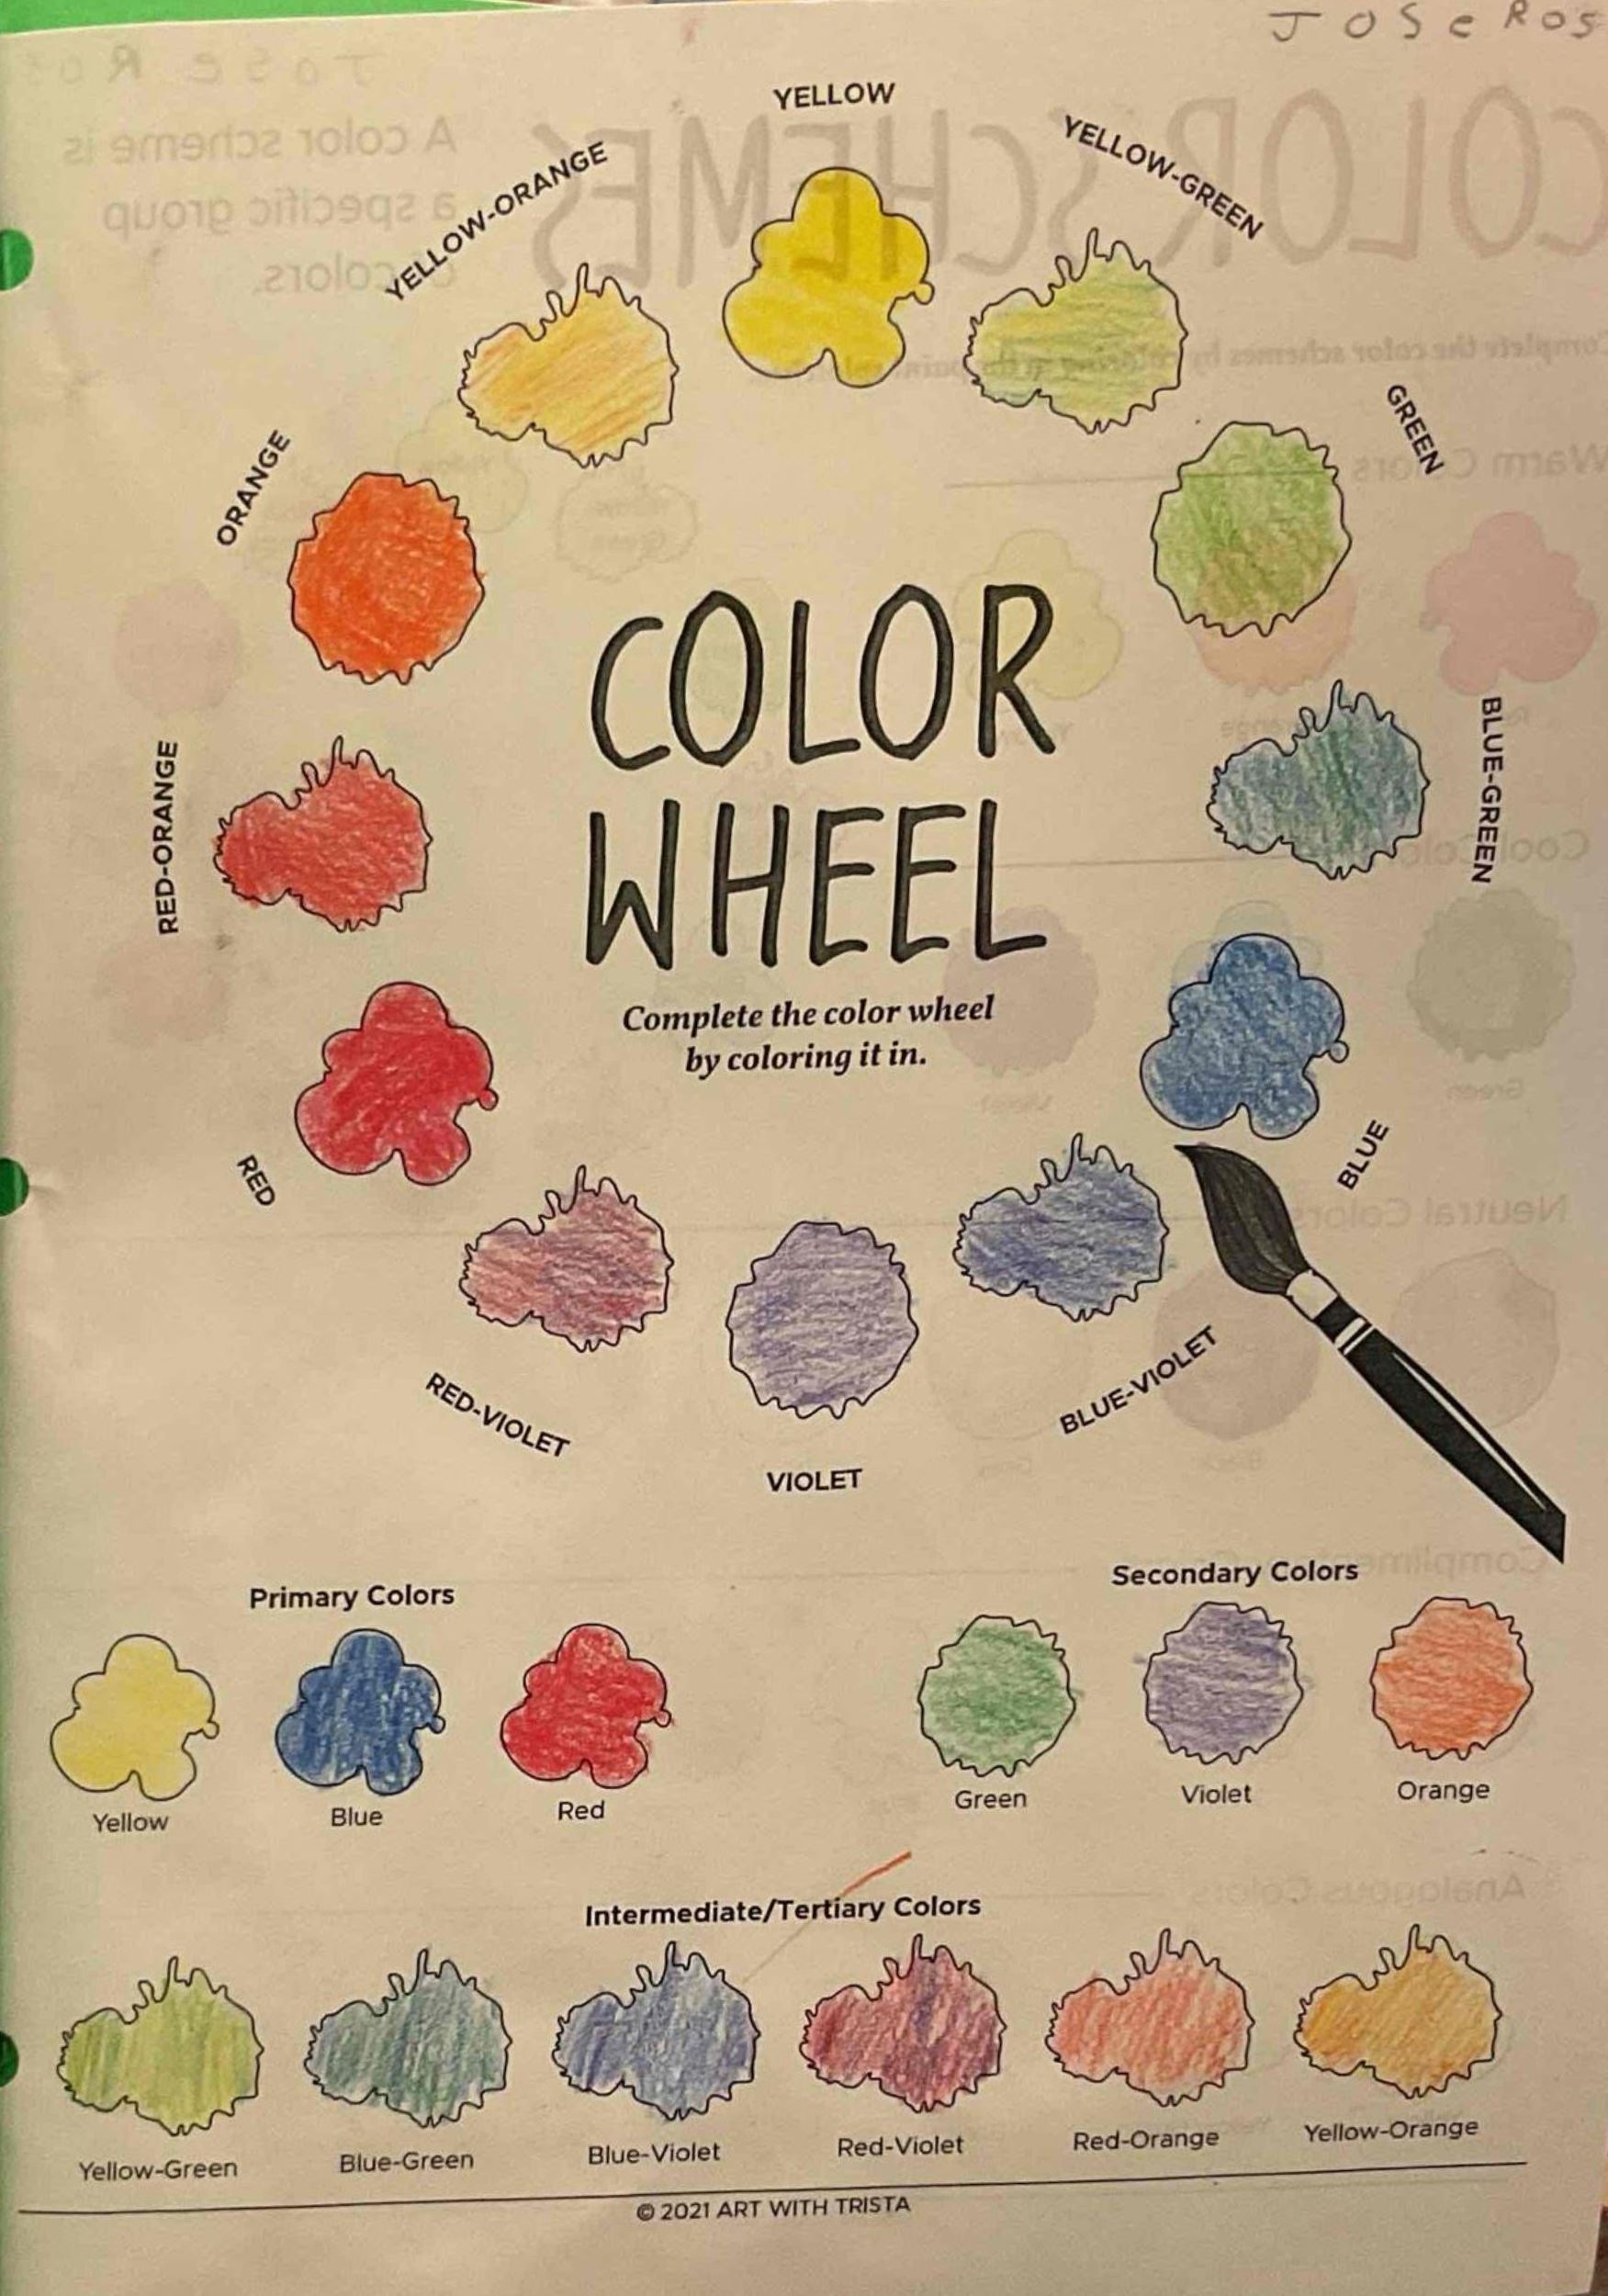 JOSe ROS
YELLOW
YELLOW-ORANGE
YELLOW-GREEN
ORANGE
GREEN
RED-ORANGE
BLUE-GREEN
COLOR
WHEEL
Complete the color wheel
by coloring it in.
RED
BLUE
RED-VIOLET
VIOLET
BLUE-VIOLET
Primary Colors
Yellow
Blue
Red
Secondary Colors
Green
Violet
Orange
Intermediate/Tertiary Colors
Yellow-Green
Blue-Green
Blue-Violet
Red-Violet
Red-Orange
Yellow-Orange
© 2021 ART WITH TRISTA